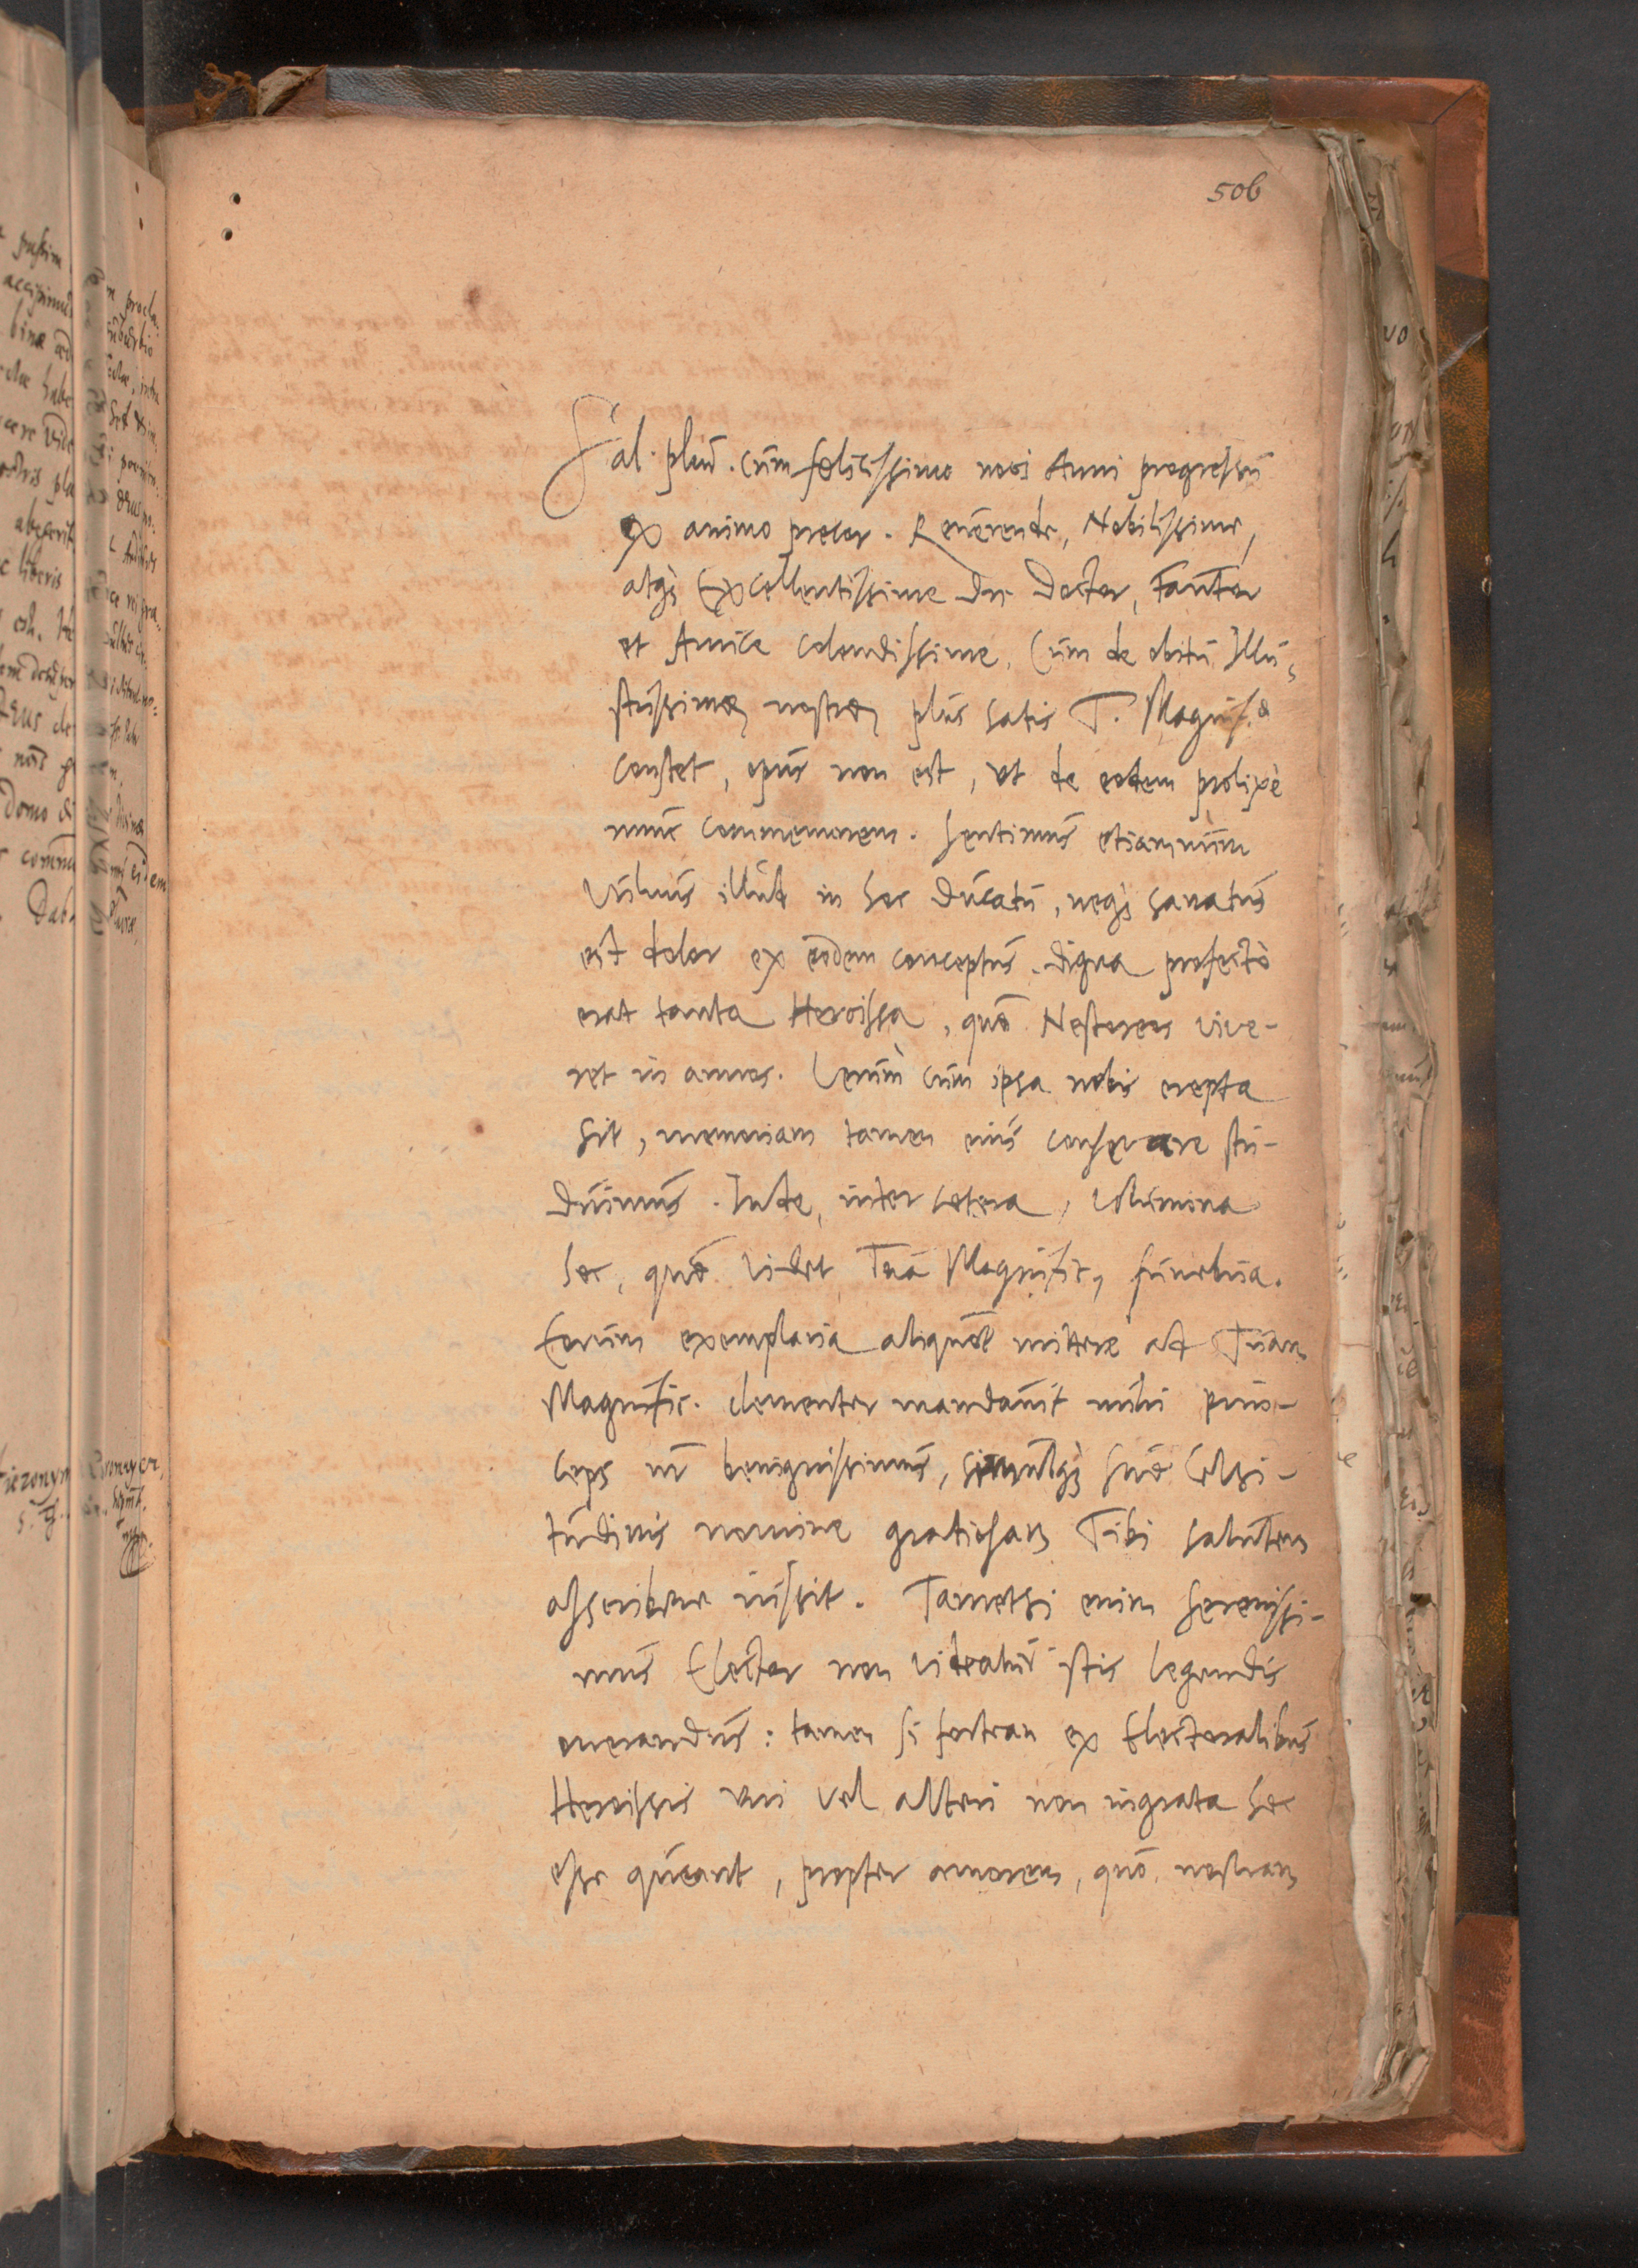 506
Sal. plur. cum felicissimo novi Anni progressu
ex animo precor. Reverende, Nobilissime,
atq; Excellentissime Dn. Doctor, Fautor
et Amice colendissime, Cum de obitu Illu-
strissimæ nostræ plus satis T. Magnif.æ
constet, opus non est, ut de eodem prolixè
nunc commemorem. Sentimus etiamnum
vulnus illud in hoc Ducatu, neq; sanatus
est dolor ex eodem conceptus. Digna profectò
erat tanta Heroissa, quæ Nestoreos vive-
ret in annos. Verùm cum ipsa nobis erepta
sit, memoriam tamen eius conservare stu-
duimus. Inde, inter cetera, volumina
hæc, quæ videt Tua Magnific, funebria.
Eorum exemplaria aliquot mittere ad Tuam
Magnific. clementer mandavit mihi prin-
ceps nr benignissimus, simulq; suæ Celsi-
tudinis nomine gratiosam Tibi salutem
asscribere iussit. Tametsi enim Serenissi-
mus Elector non videatur istis legendis
onerandus: tamen si fortean ex Electoralibus
Heroissis uni vel alteri non ingrata hæc
esse queant, propter amorem, quo nostram